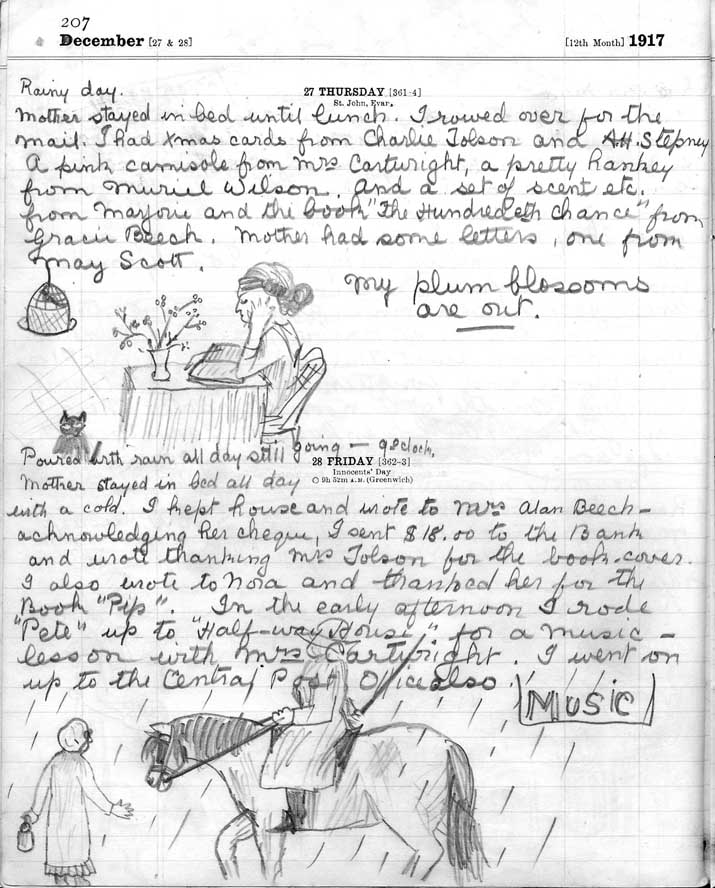 207
December [27 & 28] [12th Month] 1917
Rainy day.
27 THURSDAY [361-4]
St. John, Evan.
Mother stayed in bed until lunch. I rowed over for the
mail. I had Xmas cards from Charlie Tolson and A.H. Stepney
A pink camisole from Mrs Cartwright, a pretty hankey
from Muriel Wilson. and a set of scent etc.
from Marjorie and the book "The Hundredeth Chance" from
Gracie Beech. Mother had some letters, one from
May Scott.
My plum blossoms
are out.
Poured with rain all day still going — 9 oclock.
28 FRIDAY [362-3]
Innocents' Day
○ 9h 52m A.M. (Greenwich)
Mother stayed in bed all day
with a cold. I kept house and wrote to Mrs Alan Beech -
acknowledging her cheque, I sent $18.00 to the Bank
and wrote thanking Mrs Tolson for the book-cover.
I also wrote to Nora and thanked her for the
Book "Pip". In the early afternoon I rode
"Pete" up to "Half-way House" for a music -
lesson with Mrs Cartwright. I went on
up to the Central Post Office also.
MUSIC